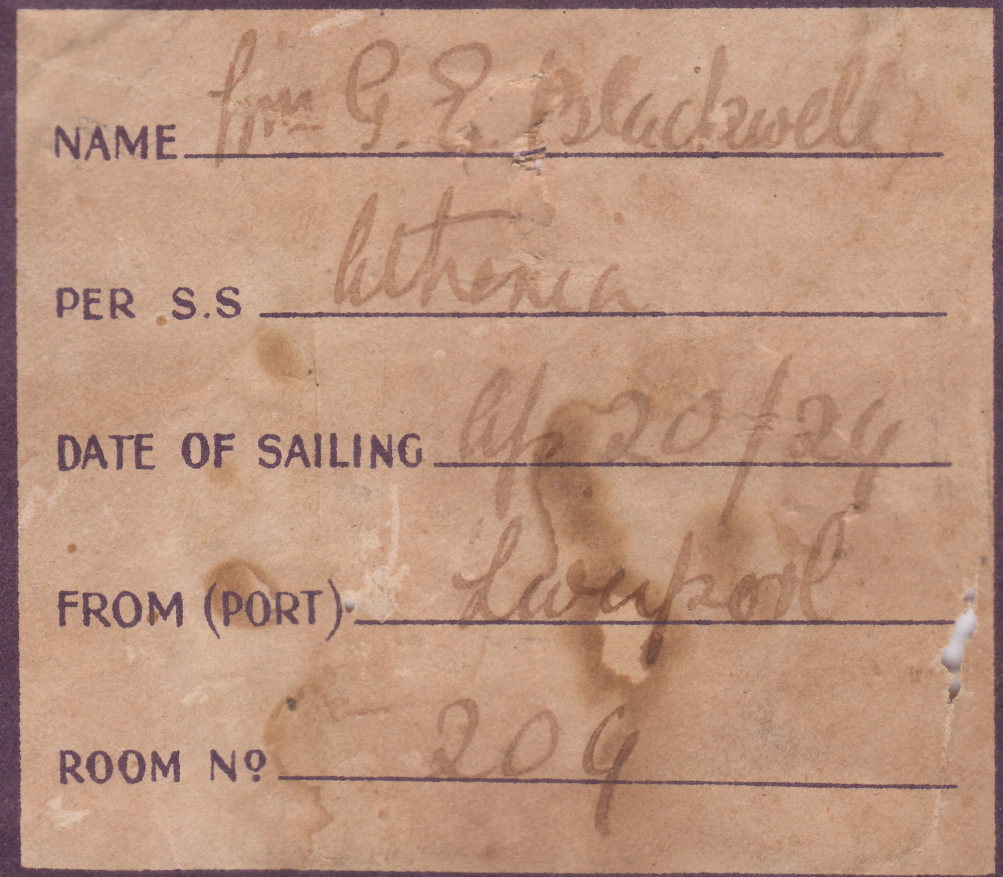 NAME G. E. Blackwell
PER S.S Athenia
DATE OF SAILING Ap 20/24
FROM (PORT) Liverpool
ROOM Nº 209